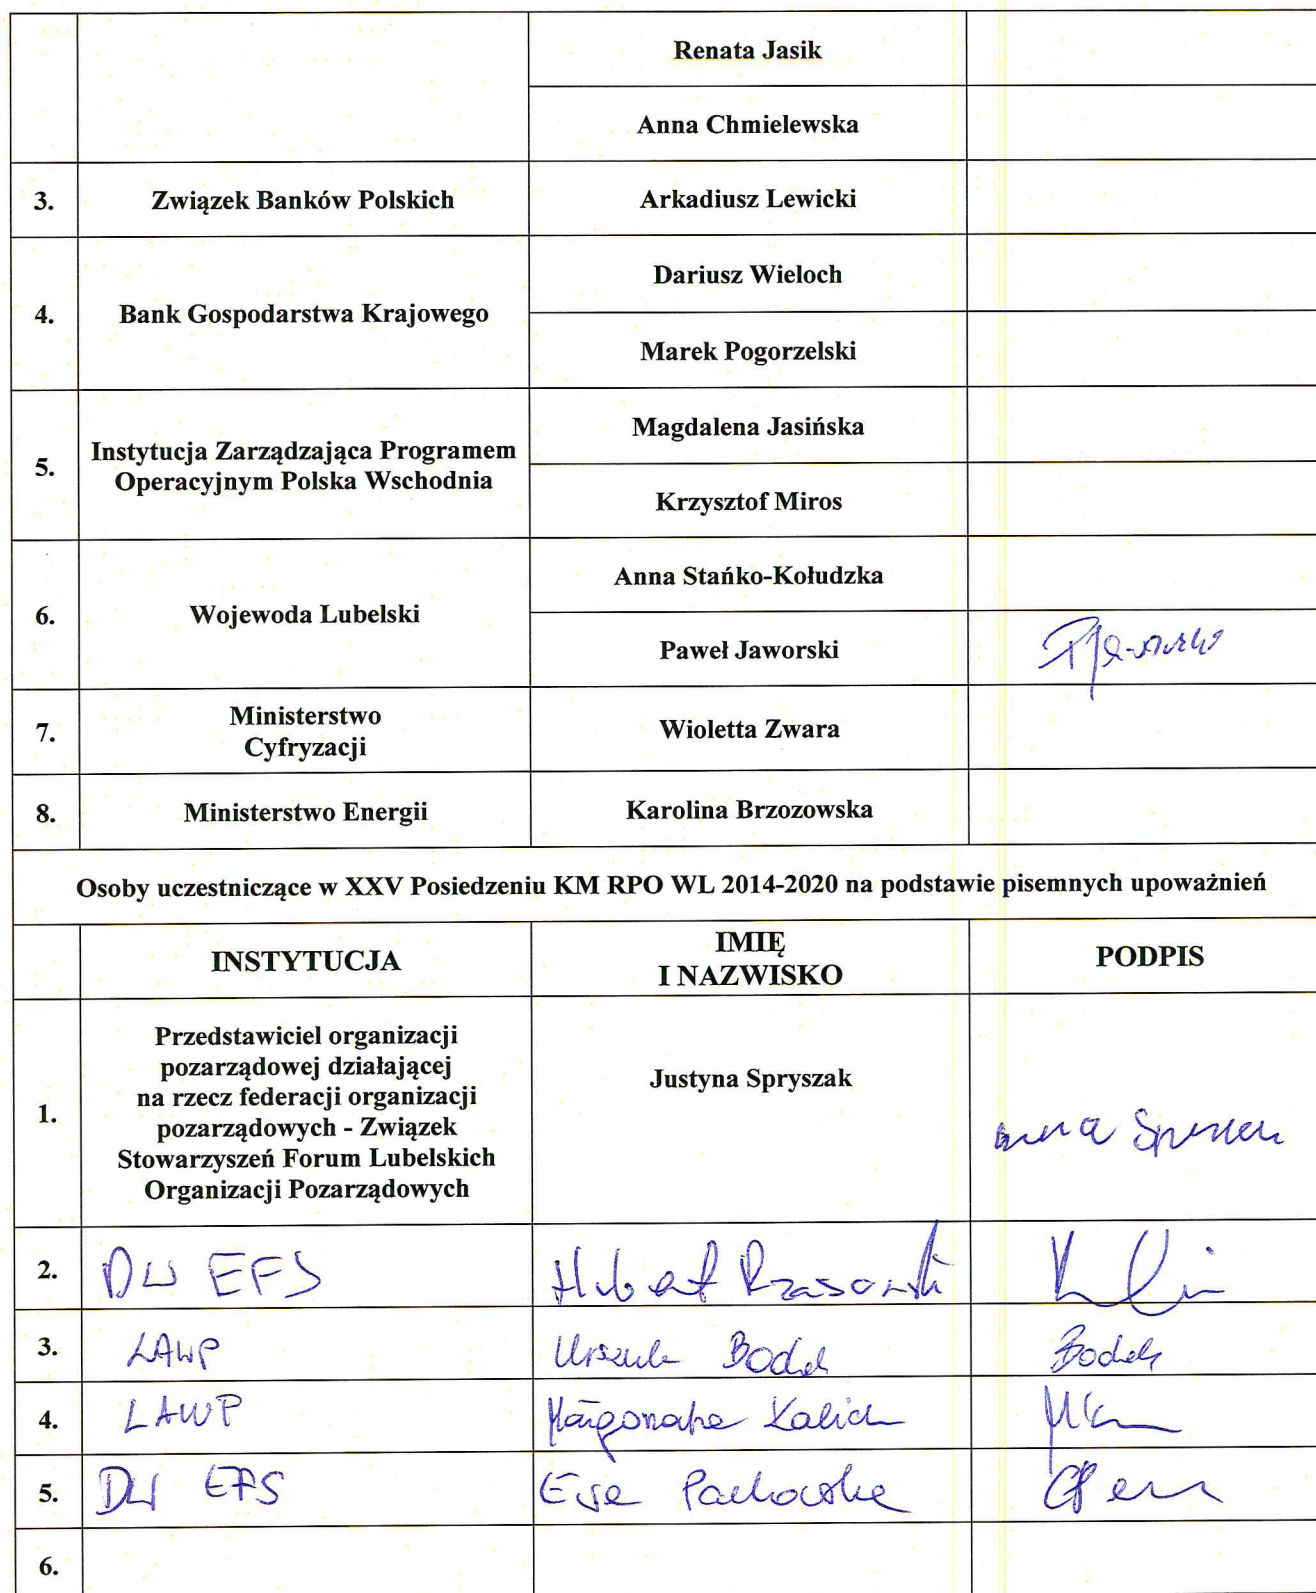 Renata Jasik
Anna Chmielewska
3. Związek Banków Polskich Arkadiusz Lewicki
Dariusz Wieloch
4. Bank Gospodarstwa Krajowego
Marek Pogorzelski
Magdalena Jasińska
5. Instytucja Zarządzająca Programem
Operacyjnym Polska Wschodnia
Krzysztof Miros
Anna Stańko-Kołudzka
6. Wojewoda Lubelski
Paweł Jaworski
7. Ministerstwo
Cyfryzacji
Wioletta Zwara
8. Ministerstwo Energii Karolina Brzozowska
Osoby uczestniczące w XXV Posiedzeniu KM RPO WL 2014-2020 na podstawie pisemnych upoważnień
INSTYTUCJA
IMIĘ
I NAZWISKO
PODPIS
1.
Przedstawiciel organizacji
pozarządowej działającej
na rzecz federacji organizacji
pozarządowych - Związek
Stowarzyszeń Forum Lubelskich
Organizacji Pozarządowych
Justyna Spryszak
2. DW EFS Hubert Rząsowski
3. LAWP Urszula
4. LAWP Małgorzata
5. DW EFS Ewa
6.